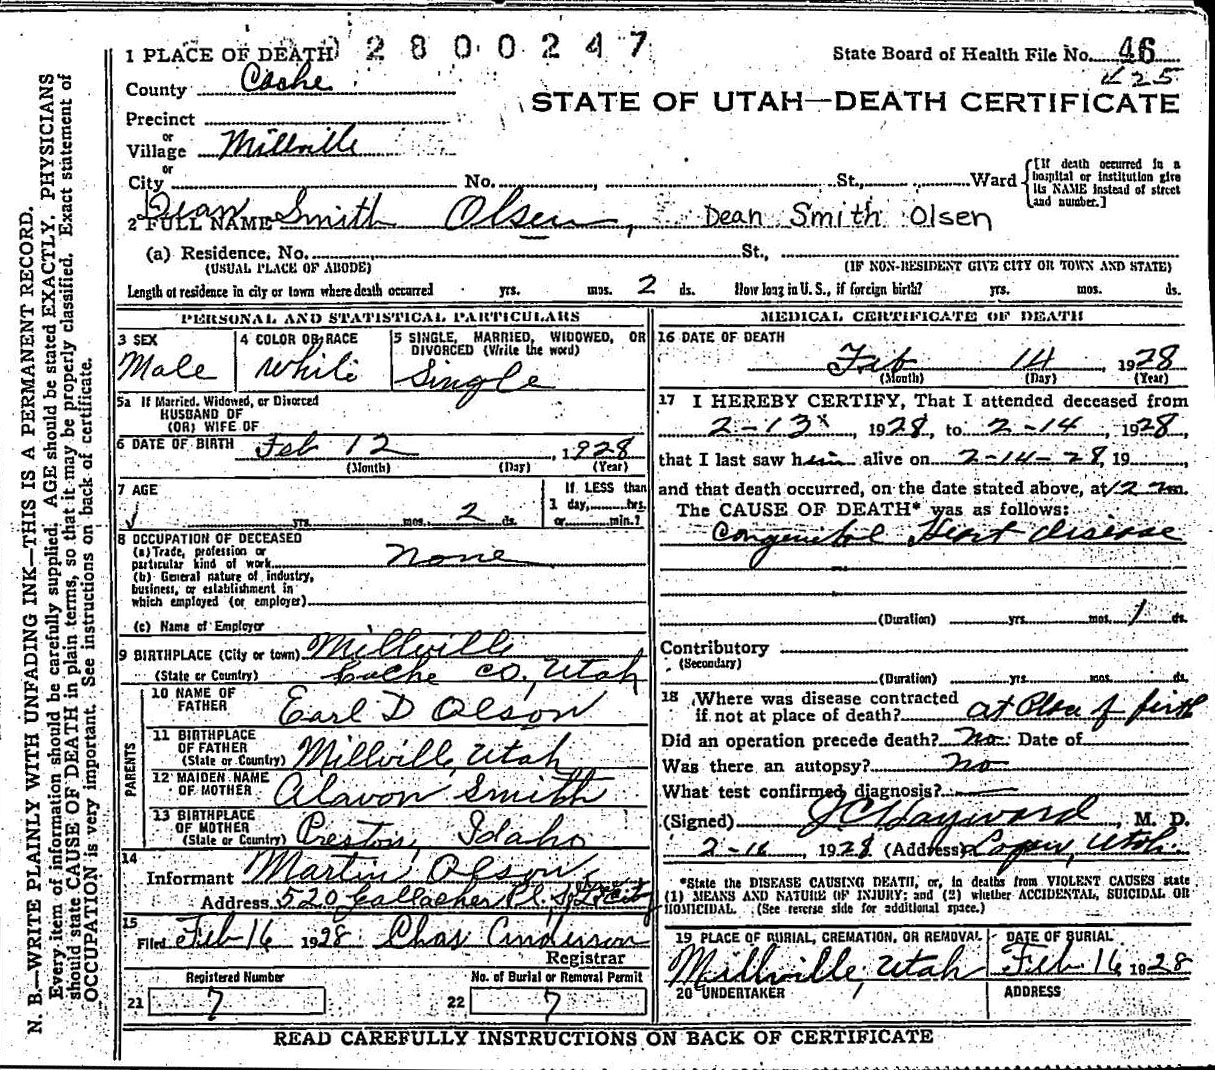 1 PLACE OF DEATH 2 8 0 0 2 4 7
State Board of Health File No. 46
County Cache
425
STATE OF UTAH—DEATH CERTIFICATE
Precinct
or
Village Millville
or
City No. , St., Ward
[If death occurred in a hospital or institution give its NAME instead of street and number.]
2 FULL NAME Dean Smith Olsen, Dean Smith Olsen
(a) Residence, No. St.,
(USUAL PLACE OF ABODE) (IF NON-RESIDENT GIVE CITY OR TOWN AND STATE)
Length of residence in city or town where death occurred yrs. mos. 2 ds. How long in U. S., if foreign birth? yrs. mos. ds.
PERSONAL AND STATISTICAL PARTICULARS
3 SEX
Male
4 COLOR OR RACE
White
5 SINGLE, MARRIED, WIDOWED, OR
DIVORCED (Write the word)
Single
5a If Married, Widowed, or Divorced
HUSBAND OF
(OR) WIFE OF
6 DATE OF BIRTH Feb 12, 1928
(Month) (Day) (Year)
7 AGE
yrs. mos. 2 ds.
If LESS than
1 day, hrs.
or min.?
8 OCCUPATION OF DECEASED
(a) Trade, profession or
particular kind of work none
(b) General nature of industry,
business, or establishment in
which employed (or employer)
(c) Name of Employer
9 BIRTHPLACE (City or town) Millville
(State or Country) Cache Co., Utah
PARENTS
10 NAME OF
FATHER Earl D Olson
11 BIRTHPLACE
OF FATHER
(State or Country) Millville, Utah
12 MAIDEN NAME
OF MOTHER Alavon Smith
13 BIRTHPLACE
OF MOTHER
(State or Country) Preston, Idaho
14
Informant Martin Olson
Address 520 Gallacher Pl. S. L. City
15
Filed Feb 16 1928 Chas Anderson
Registrar
Registered Number
21 7
No. of Burial or Removal Permit
22 7
MEDICAL CERTIFICATE OF DEATH
16 DATE OF DEATH
Feb 14, 1928
(Month) (Day) (Year)
17 I HEREBY CERTIFY, That I attended deceased from
2-13, 1928, to 2-14, 1928,
that I last saw him alive on 2-14-28, 19
and that death occurred, on the date stated above, at 12 m.
The CAUSE OF DEATH* was as follows:
Congenital Heart disease
(Duration) yrs. mos. 1 ds.
Contributory
(Secondary)
(Duration) yrs. mos. ds.
18 Where was disease contracted
if not at place of death? at Place of birth
Did an operation precede death? No Date of
Was there an autopsy? no
What test confirmed diagnosis?
(Signed) J C Hayward, M. D.
2-16, 1928 (Address) Logan, Utah.
*State the DISEASE CAUSING DEATH, or, in deaths from VIOLENT CAUSES state
(1) MEANS AND NATURE OF INJURY; and (2) whether ACCIDENTAL, SUICIDAL OR
HOMICIDAL. (See reverse side for additional space.)
19 PLACE OF BURIAL, CREMATION, OR REMOVAL
Millville, Utah
DATE OF BURIAL
Feb 16 1928
20 UNDERTAKER
ADDRESS
READ CAREFULLY INSTRUCTIONS ON BACK OF CERTIFICATE
N. B.—WRITE PLAINLY WITH UNFADING INK—THIS IS A PERMANENT RECORD.
Every item of information should be carefully supplied. AGE should be stated EXACTLY. PHYSICIANS
should state CAUSE OF DEATH in plain terms, so that it may be properly classified. Exact statement of
OCCUPATION is very important. See instructions on back of certificate.